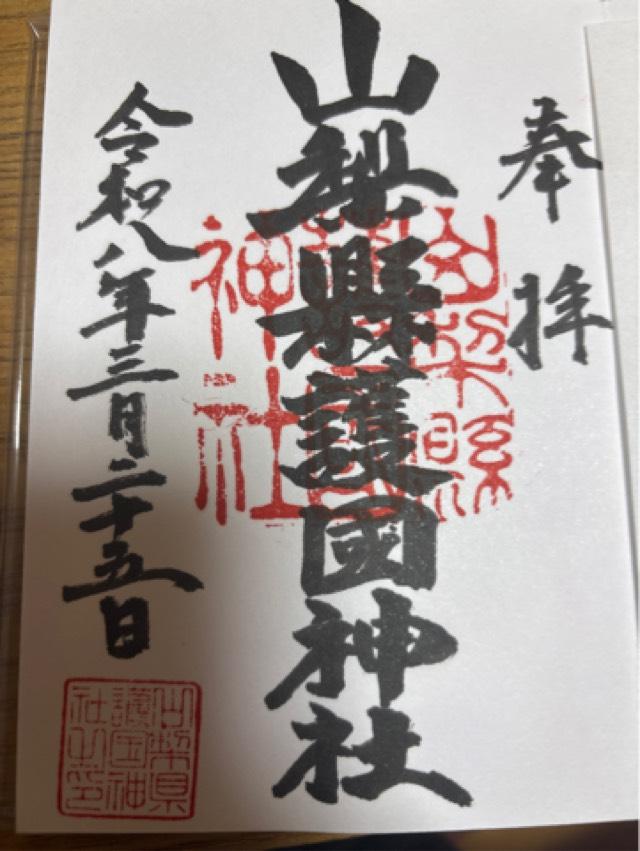 奉拝
山梨縣護國神社
山梨縣護國神社
令和八年三月二十五日
山梨県護国神社之印